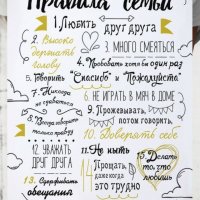 Правила семьи
1. Любить
друг друга
2. Высоко
держать
голову
3. МНОГО СМЕЯТЬСЯ
4. Пробовать хотя бы один раз
5. Говорить "Спасибо" и "Пожалуйста"
6. НЕ ИГРАТЬ В МЯЧ В ДОМЕ
7. Никогда
не сдаваться
8. Всегда говорить
только правду
9. Прожевывать,
потом говорить.
10. Доверять себе
11. Не ныть
12. УВАЖАТЬ
ДРУГ ДРУГА
13. Сдерживать
обещания
14 Прощать,
даже когда
это трудно
15. Делать
то, что
любишь